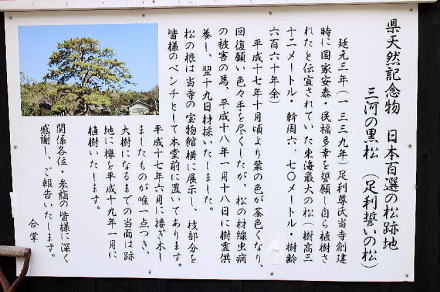 県天然記念物 日本百選の松跡地
三河の黒松 (足利誓いの松)
延元三年(一三三九年)足利尊氏当寺創建
時に国家安泰・民福多幸を誓願し自ら植樹さ
れたと伝宣されていた東海最大の松(樹高三
十二メートル・幹周六・七〇メートル・樹齢
六百六十年余)
平成十七年十月頃より葉の色が茶色くなり、
回復願い色々手を尽くしたが、松の材線虫病
の被害の為、平成十八年一月十八日に樹霊供
養し、翌十九日材採いたしました。
松の根は当寺の宝物館横に展示し、枝部分を
皆様のベンチとして本堂前に置いてあります。
平成十七年六月に接ぎ木し
ましたものが唯一点つき、
大樹になるまでの当面は跡
地に樟を平成十九年一月に
植樹いたします。
関係各位・参詣の皆様に深く
感謝し、ご報告いたします。
合掌